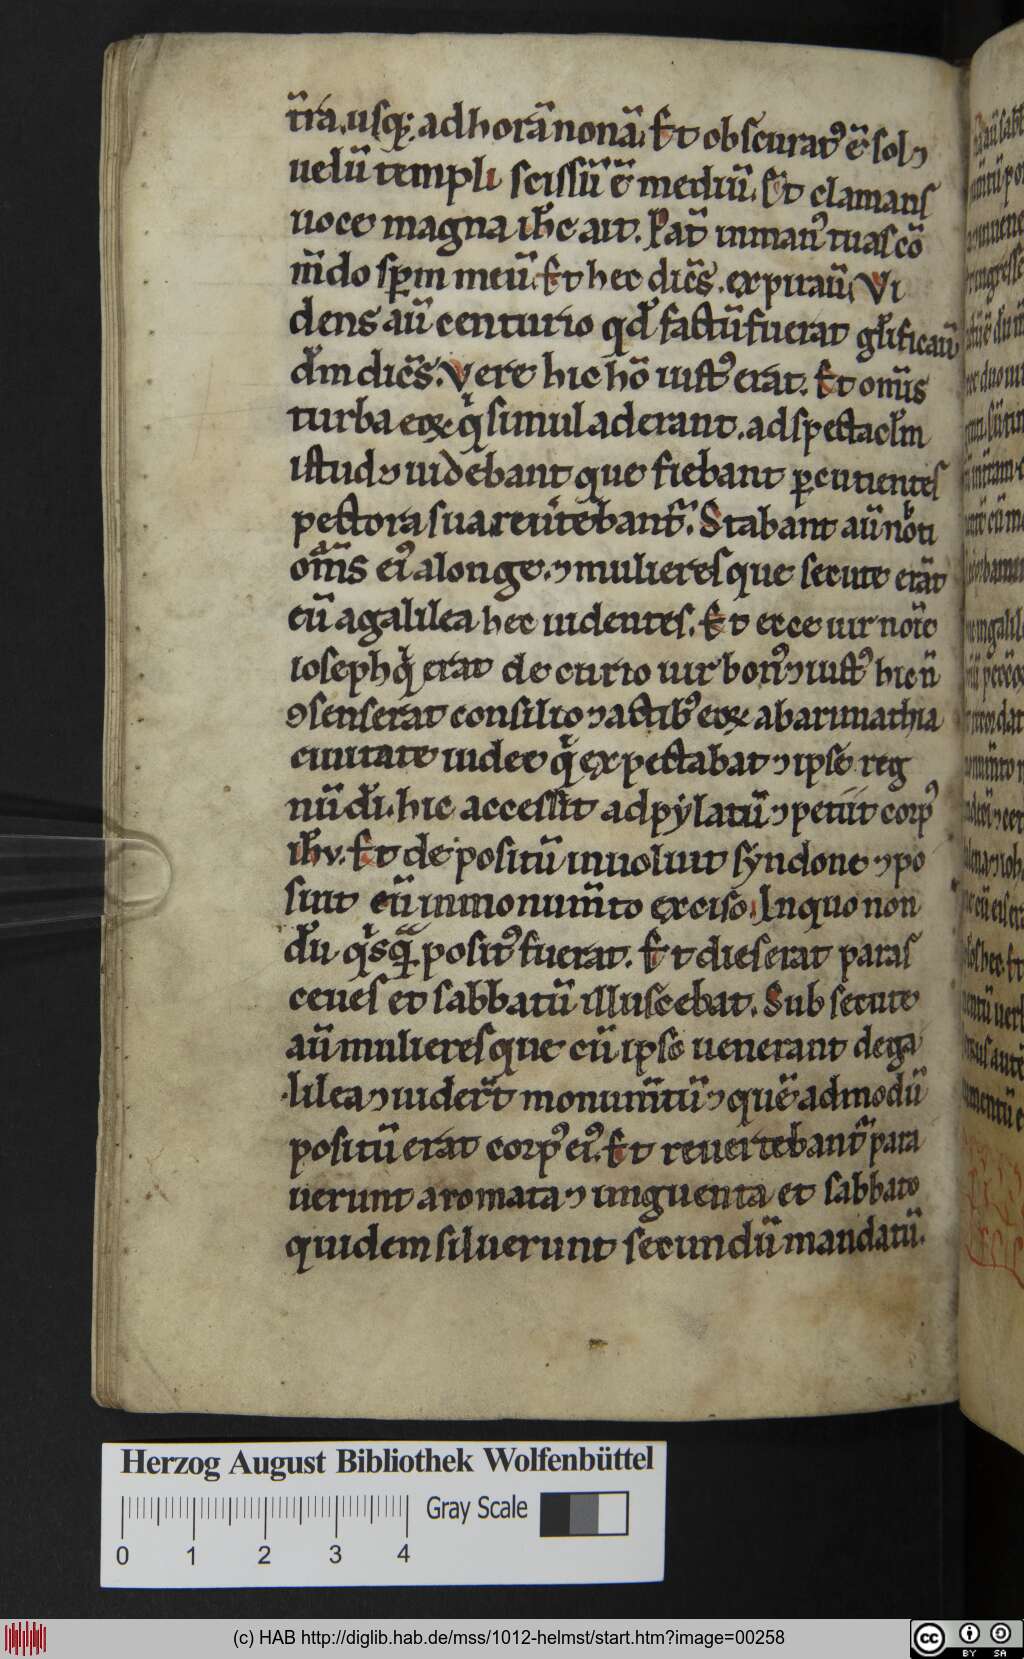 t̄ra. usq; ad horā nonā. Et obscuratꝰ ē sol ⁊
uelū templi scissū ē mediū. Et clamans
uoce magna ih̄c ait. Pat̄ in manꝰ tuas cō
m̄do sp̄m meū. Et hec dicēs. expirauī. Vi
dens aū centurio qd̄ factū fuerat gl̄ificauī
dm̄ dicēs. Vere hic hō iustꝰ erat. Et om̄is
turba eoꝝ q̄ simul aderant. ad spectaclm̄
istud ⁊ uidebant que fiebant ꝑcutientes
pectora sua reuītebant̄. Stabant aū noti
om̄s eiꝰ a longe. ⁊ mulieres que secute erāt
eū a galilea hec uidentes. Et ecce uir noīe
ioseph q̇ erat decurio uir bonꝰ ⁊ iustꝰ hic ñ
ꝯsenserat consilio ⁊ actibꝰ eoꝝ ab arimathia
ciuitate iudee q̇ expectabat ⁊ ipse reg
nū dī. hic accessit ad pẏlatū ⁊ petiit corpꝰ
ih̄u. Et depositū inuoluit sẏndone ⁊ po
suit eū in monum̄to exciso. In quo non
dū q̇sꝗ̄ positꝰ fuerat. Et dies erat paras
ceues et sabbatū illuscebat. Subsecute
aū mulieres que cū ipso uenerant de ga
lilea ⁊ uider̄t monum̄tū ⁊ quē admodū
positū erat corpꝰ eiꝰ. Et reuertebant̄ para
uerunt aromata ⁊ unguenta et sabbato
quidem siluerunt secundū mandatū.
Herzog August Bibliothek Wolfenbüttel
Gray Scale
0 1 2 3 4
(c) HAB http://diglib.hab.de/mss/1012-helmst/start.htm?image=00258
cc BY SA